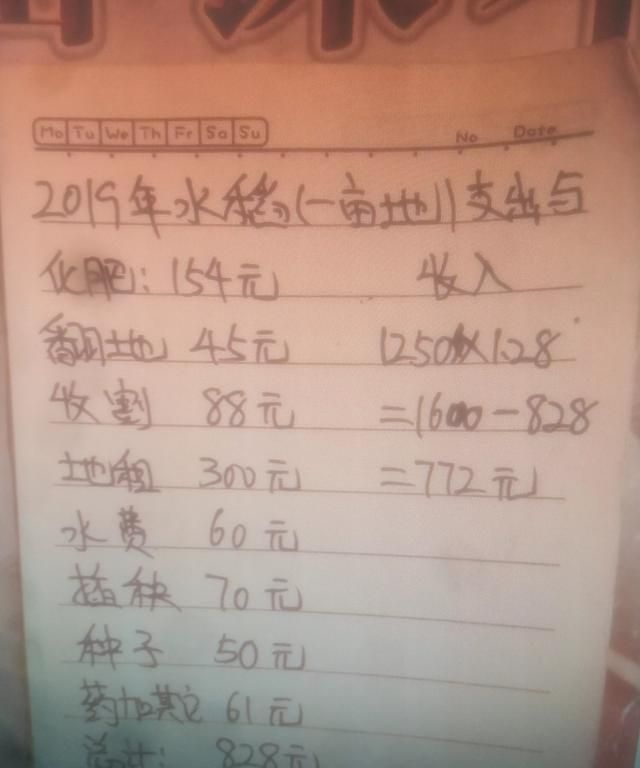 Mo Tu We Th Fr Sa Su No Date
2019年水稻(一亩地)支出与
化肥:154元 收入
翻地 45元 1250×1.28
收割 88元 =1600-828
地租 300元 =772元
水费 60元
插秧 70元
种子 50元
药加其它 61元
总计: 828元